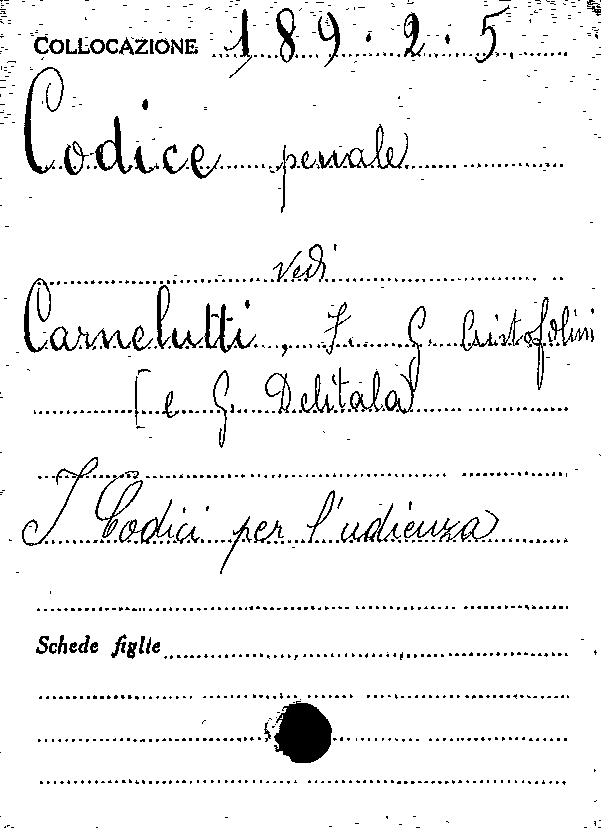 COLLOCAZIONE 189.2.5
Codice penale
vedi
Carnelutti, F. G. Cristofolini
[e G. Delitala
I Codici per l'udienza
Schede figlie